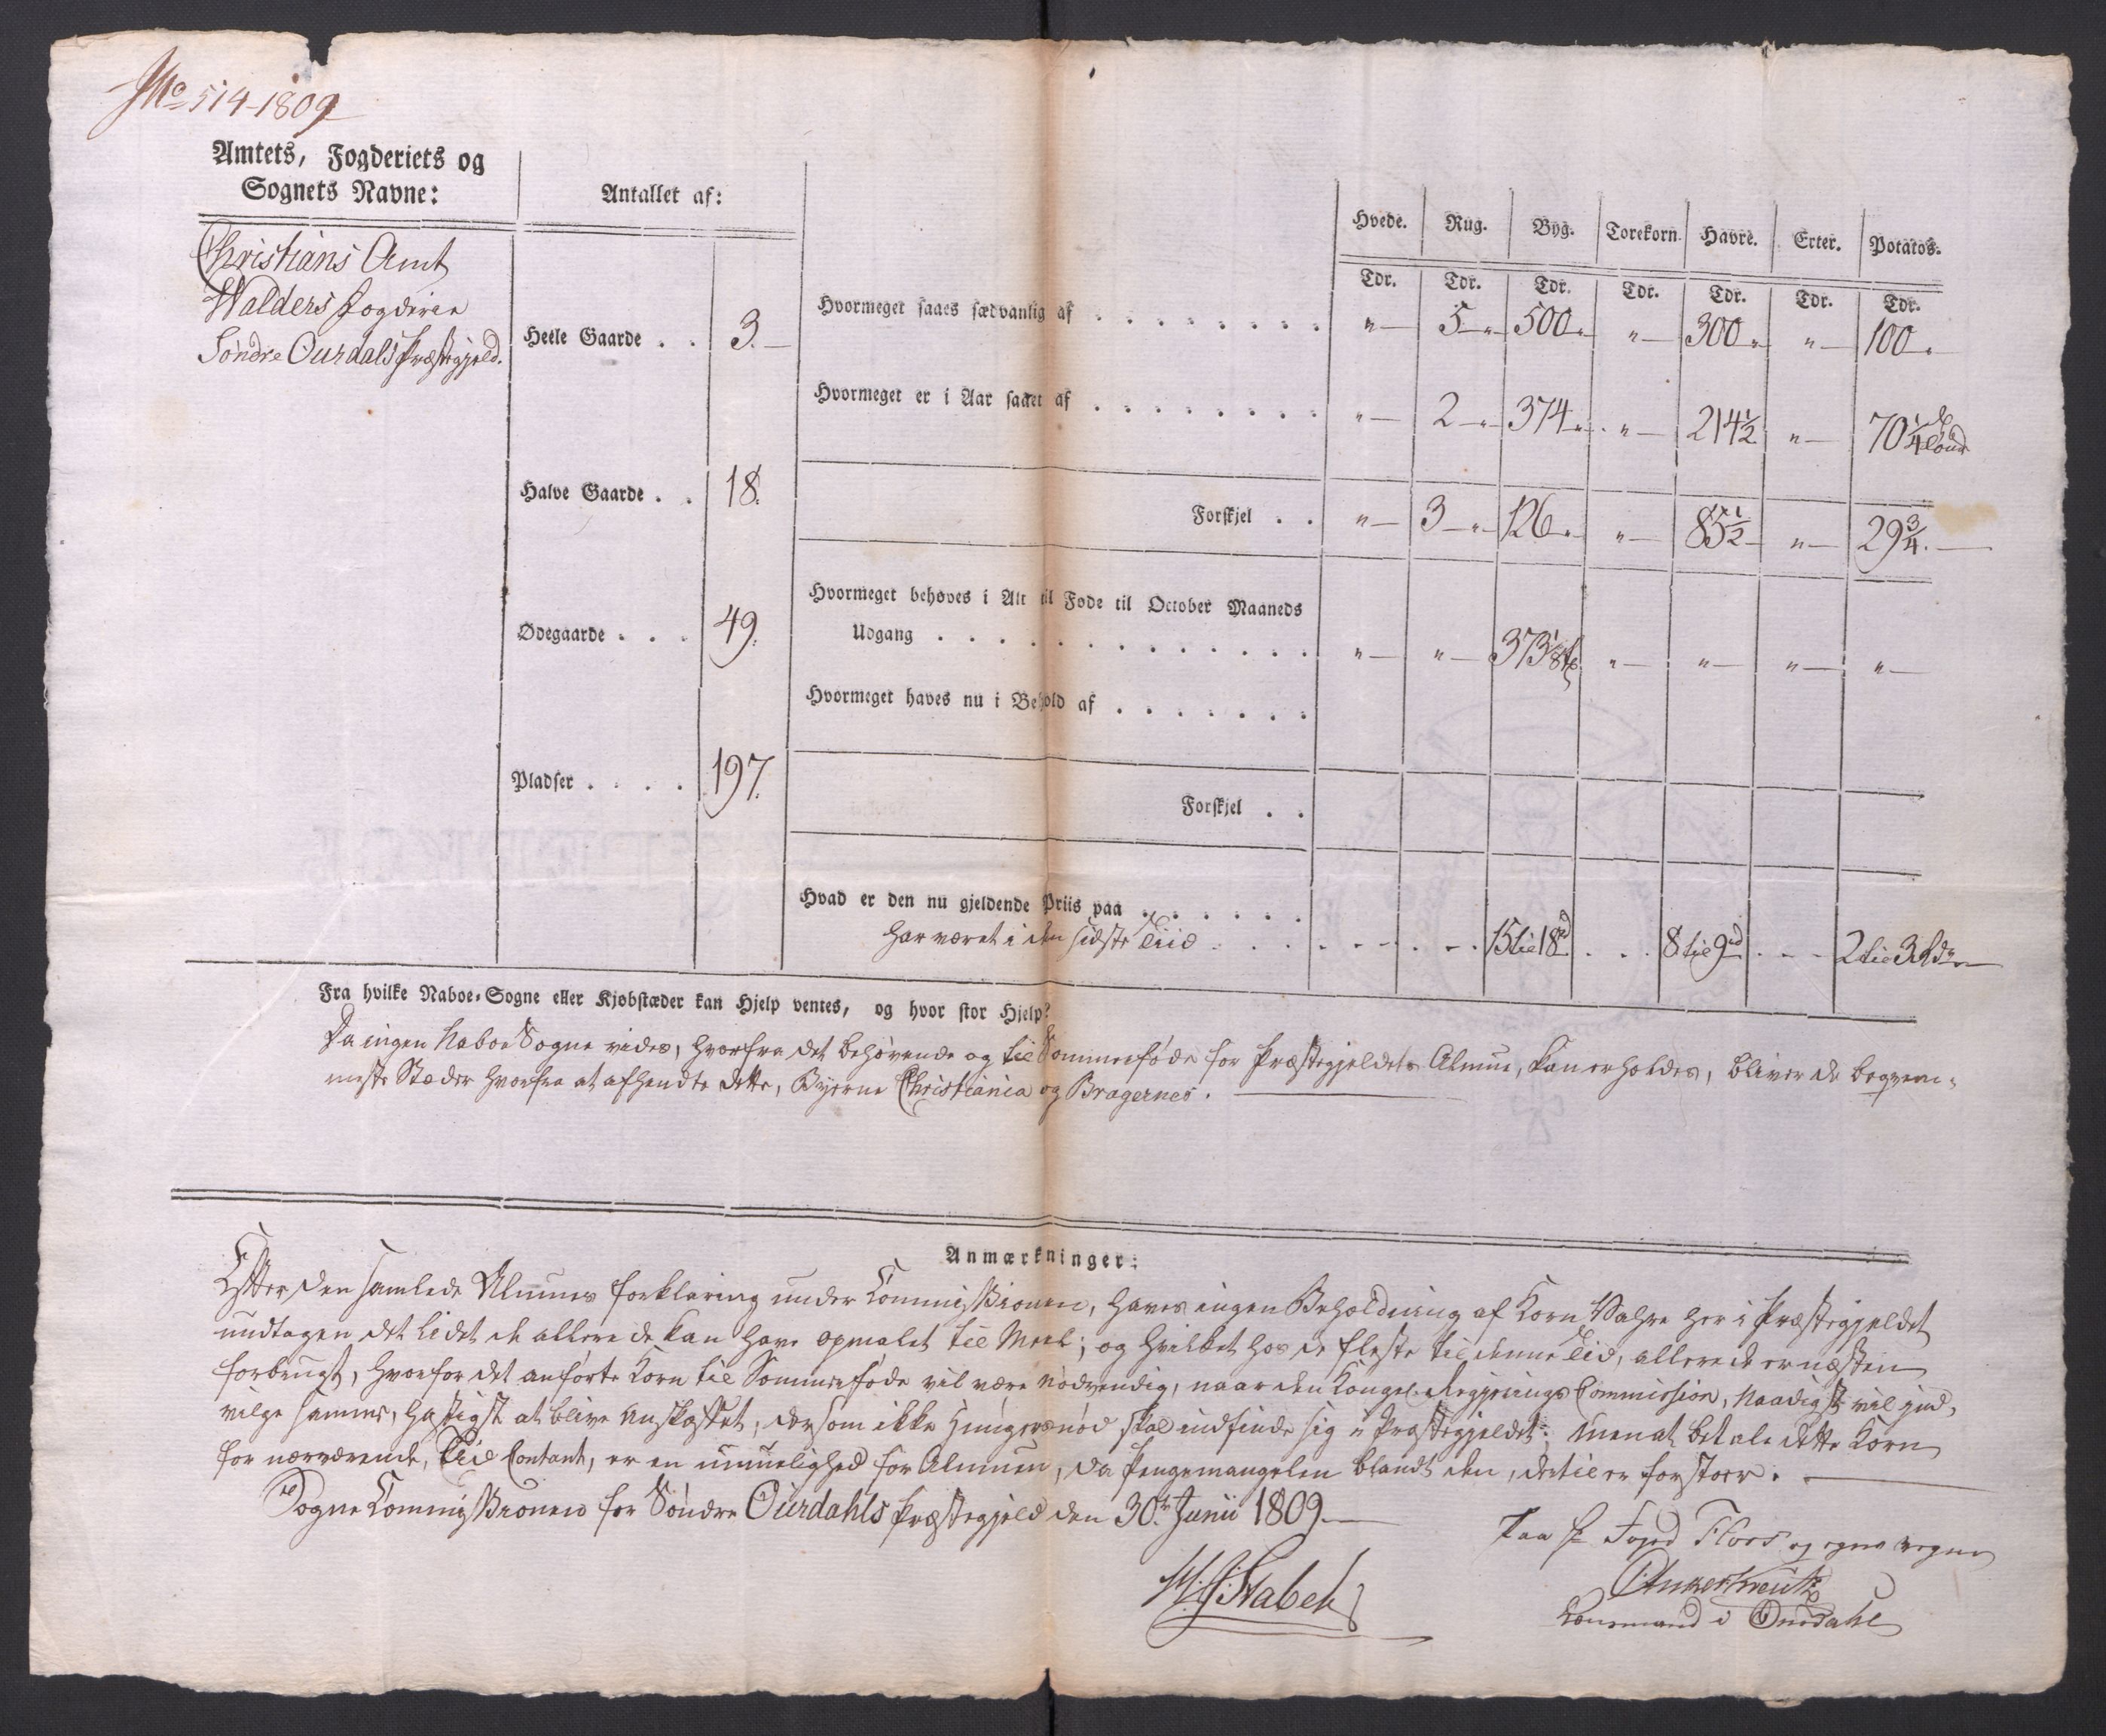 No 514-1809
Amtets, Fogderiets og
Sognets Navne:
Antallet af:
Hvede. Rug. Byg. Torekorn. Havre. Erter. Potatos.
Tdr. Tdr. Tdr. Tdr. Tdr. Tdr. Tdr.
Christians Amt
Walders Fogderie
Söndre Ourdals Præstegjeld.
Heele Gaarde . . 3.
Halve Gaarde . . 18.
Ødegaarde . . . 49.
Pladser . . . . 197.
Hvormeget saaes sædvanlig af . . . . . . . . " 5 " 500 " " 300 " " 100 "
Hvormeget er i Aar saaet af . . . . . . . . " 2 " 374 " " 214½ " 70¼
Forskjel . . " 3 " 126 " " 85½ " 29¾.
Hvormeget behøves i Alt til Føde til October Maaneds
Udgang . . . . . . . . . . . . " " 373⅛ " " " "
Hvormeget haves nu i Behold af . . . . . . .
Forskjel . .
Hvad er den nu gjeldende Priis paa . . . . . .
har været i den sidste Tiid . . . 15 til 18 rd . . . 8 til 9 rd . . . 2 til 3 Rdr
Fra hvilke Naboe-Sogne eller Kjøbstæder kan Hjelp ventes, og hvor stor Hjelp?
Da ingen Naboe Sogne vides, hvorfra det behøvende og til Sommerføde for Præstegjeldets Almue, kan erholdes, bliver de beqvem-
meste Stæder hvorfra at afhendte dette, Byerne Christiania og Bragernes.
Anmærkninger:
Efter den samlede Almues forklaring under Commissionen, haves ingen Beholdning af Korn Vahre her i Præstegjeldet
undtagen det lidet de allerede kan have opmalet til Meel; og hvilket hos de fleste til denne Tid, allerede er næsten
forbrugt, hvorfor det anførte Korn til Sommerføde vil være nödvendig, naar den Kongel. Regjerings Commission, Naadigst vil
samme, hastigst at blive Anskaffet, dersom ikke Hungersnöd skal indfinde sig i Præstegjeldet: men at betale dette Korn
for nærværende Tiid Contant, er en umuelighed for Almuen, da Pengemangelen blandt den, dertil er for stoer.
Sogne Commissionen for Söndre Ourdahls Præstegjeld den 30te Junii 1809.
Paa Hr Foged Flors og egne vegne
Stabel
Lensmand i Ourdahl